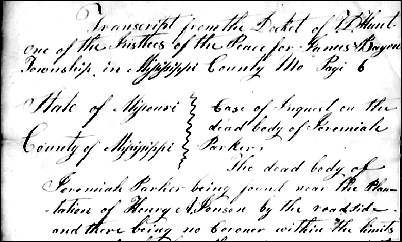 Transcript from the Docket of J D Hunt
one of the Justices of the Peace for James Bayou
Township in Mississippi County Mo Page 6
State of Missouri
County of Mississippi
Case of Inquest on the
dead body of Jeremiah
Parker,
The dead body of
Jeremiah Parker being found near the Plan-
tation of Henry A Jonson by the roadside
and there being no Coroner within the limits